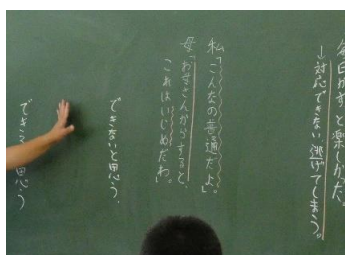 毎日がずっと楽しかった
→対応できない逃げてしまう。
私「こんなの普通だよ」
母「お母さんからすると、
これはいじめだわ。
できないと思う。
できると思う